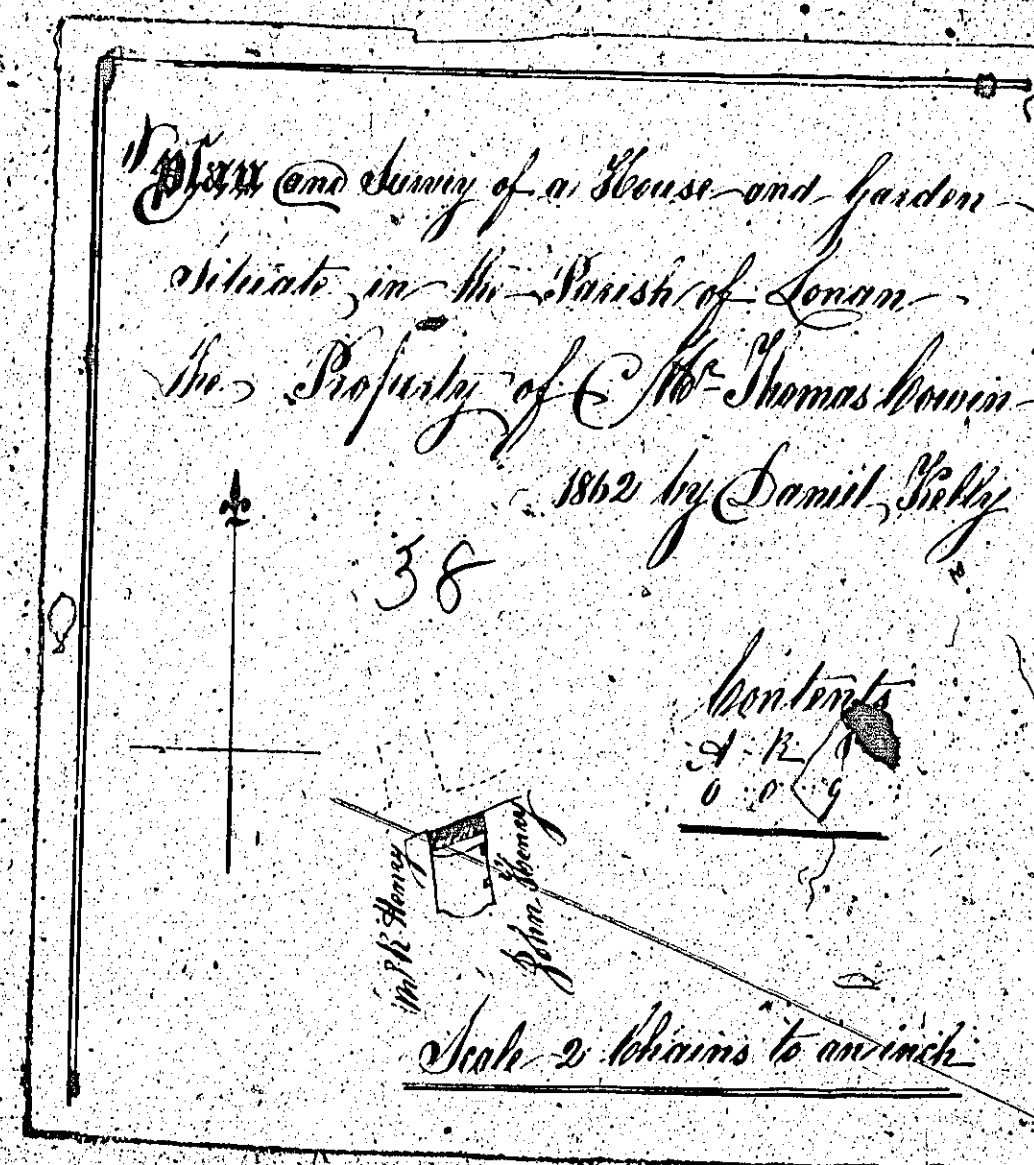 Plan and Survey of a House and Garden
Situate in the Parish of Lonan
the Property of Mr Thomas Cowin
1862 by Daniel Kelly
38
Contents
A R
0 0 9
Mr R Henry
John Henry
Scale 2 Chains to an inch